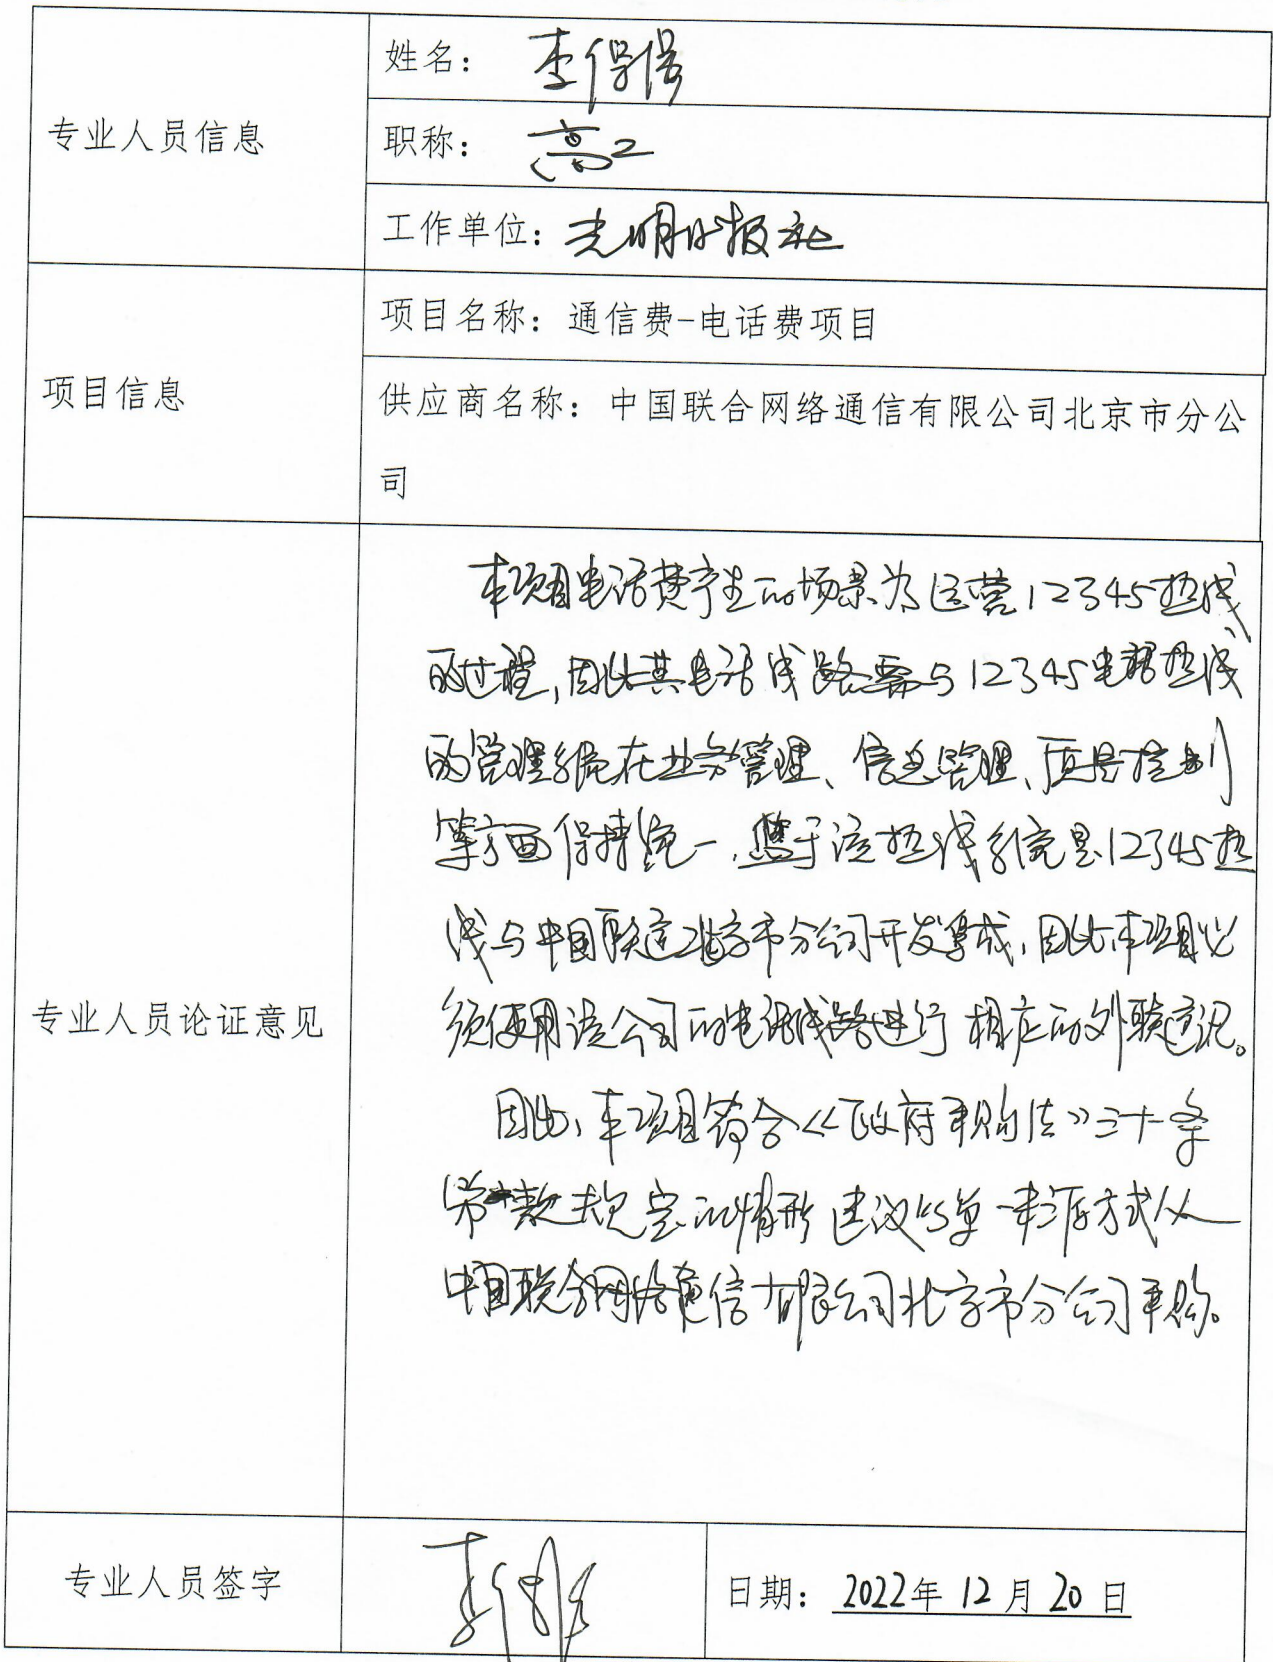 专业人员信息
姓名：李保
职称：高工
工作单位：光明日报社
项目信息
项目名称：通信费-电话费项目
供应商名称：中国联合网络通信有限公司北京市分公
司
专业人员论证意见
本项目电话费产生的场景为运营12345热线
的过程，因此其电话线路需与12345电话热线
的管理系统在业务管理、信息管理、质量控制
等方面保持统一，于该热线系统是12345热
线与中国联通北京市分公司开发集成，因此本项目必
须使用该公司的电话线路进行相应的外联通讯。
因此，本项目符合《政府采购法》三十一条
第款规定的情形建议以单一来源方式从
中国联合网络通信有限公司北京市分公司采购。
专业人员签字
日期：2022年12月20日